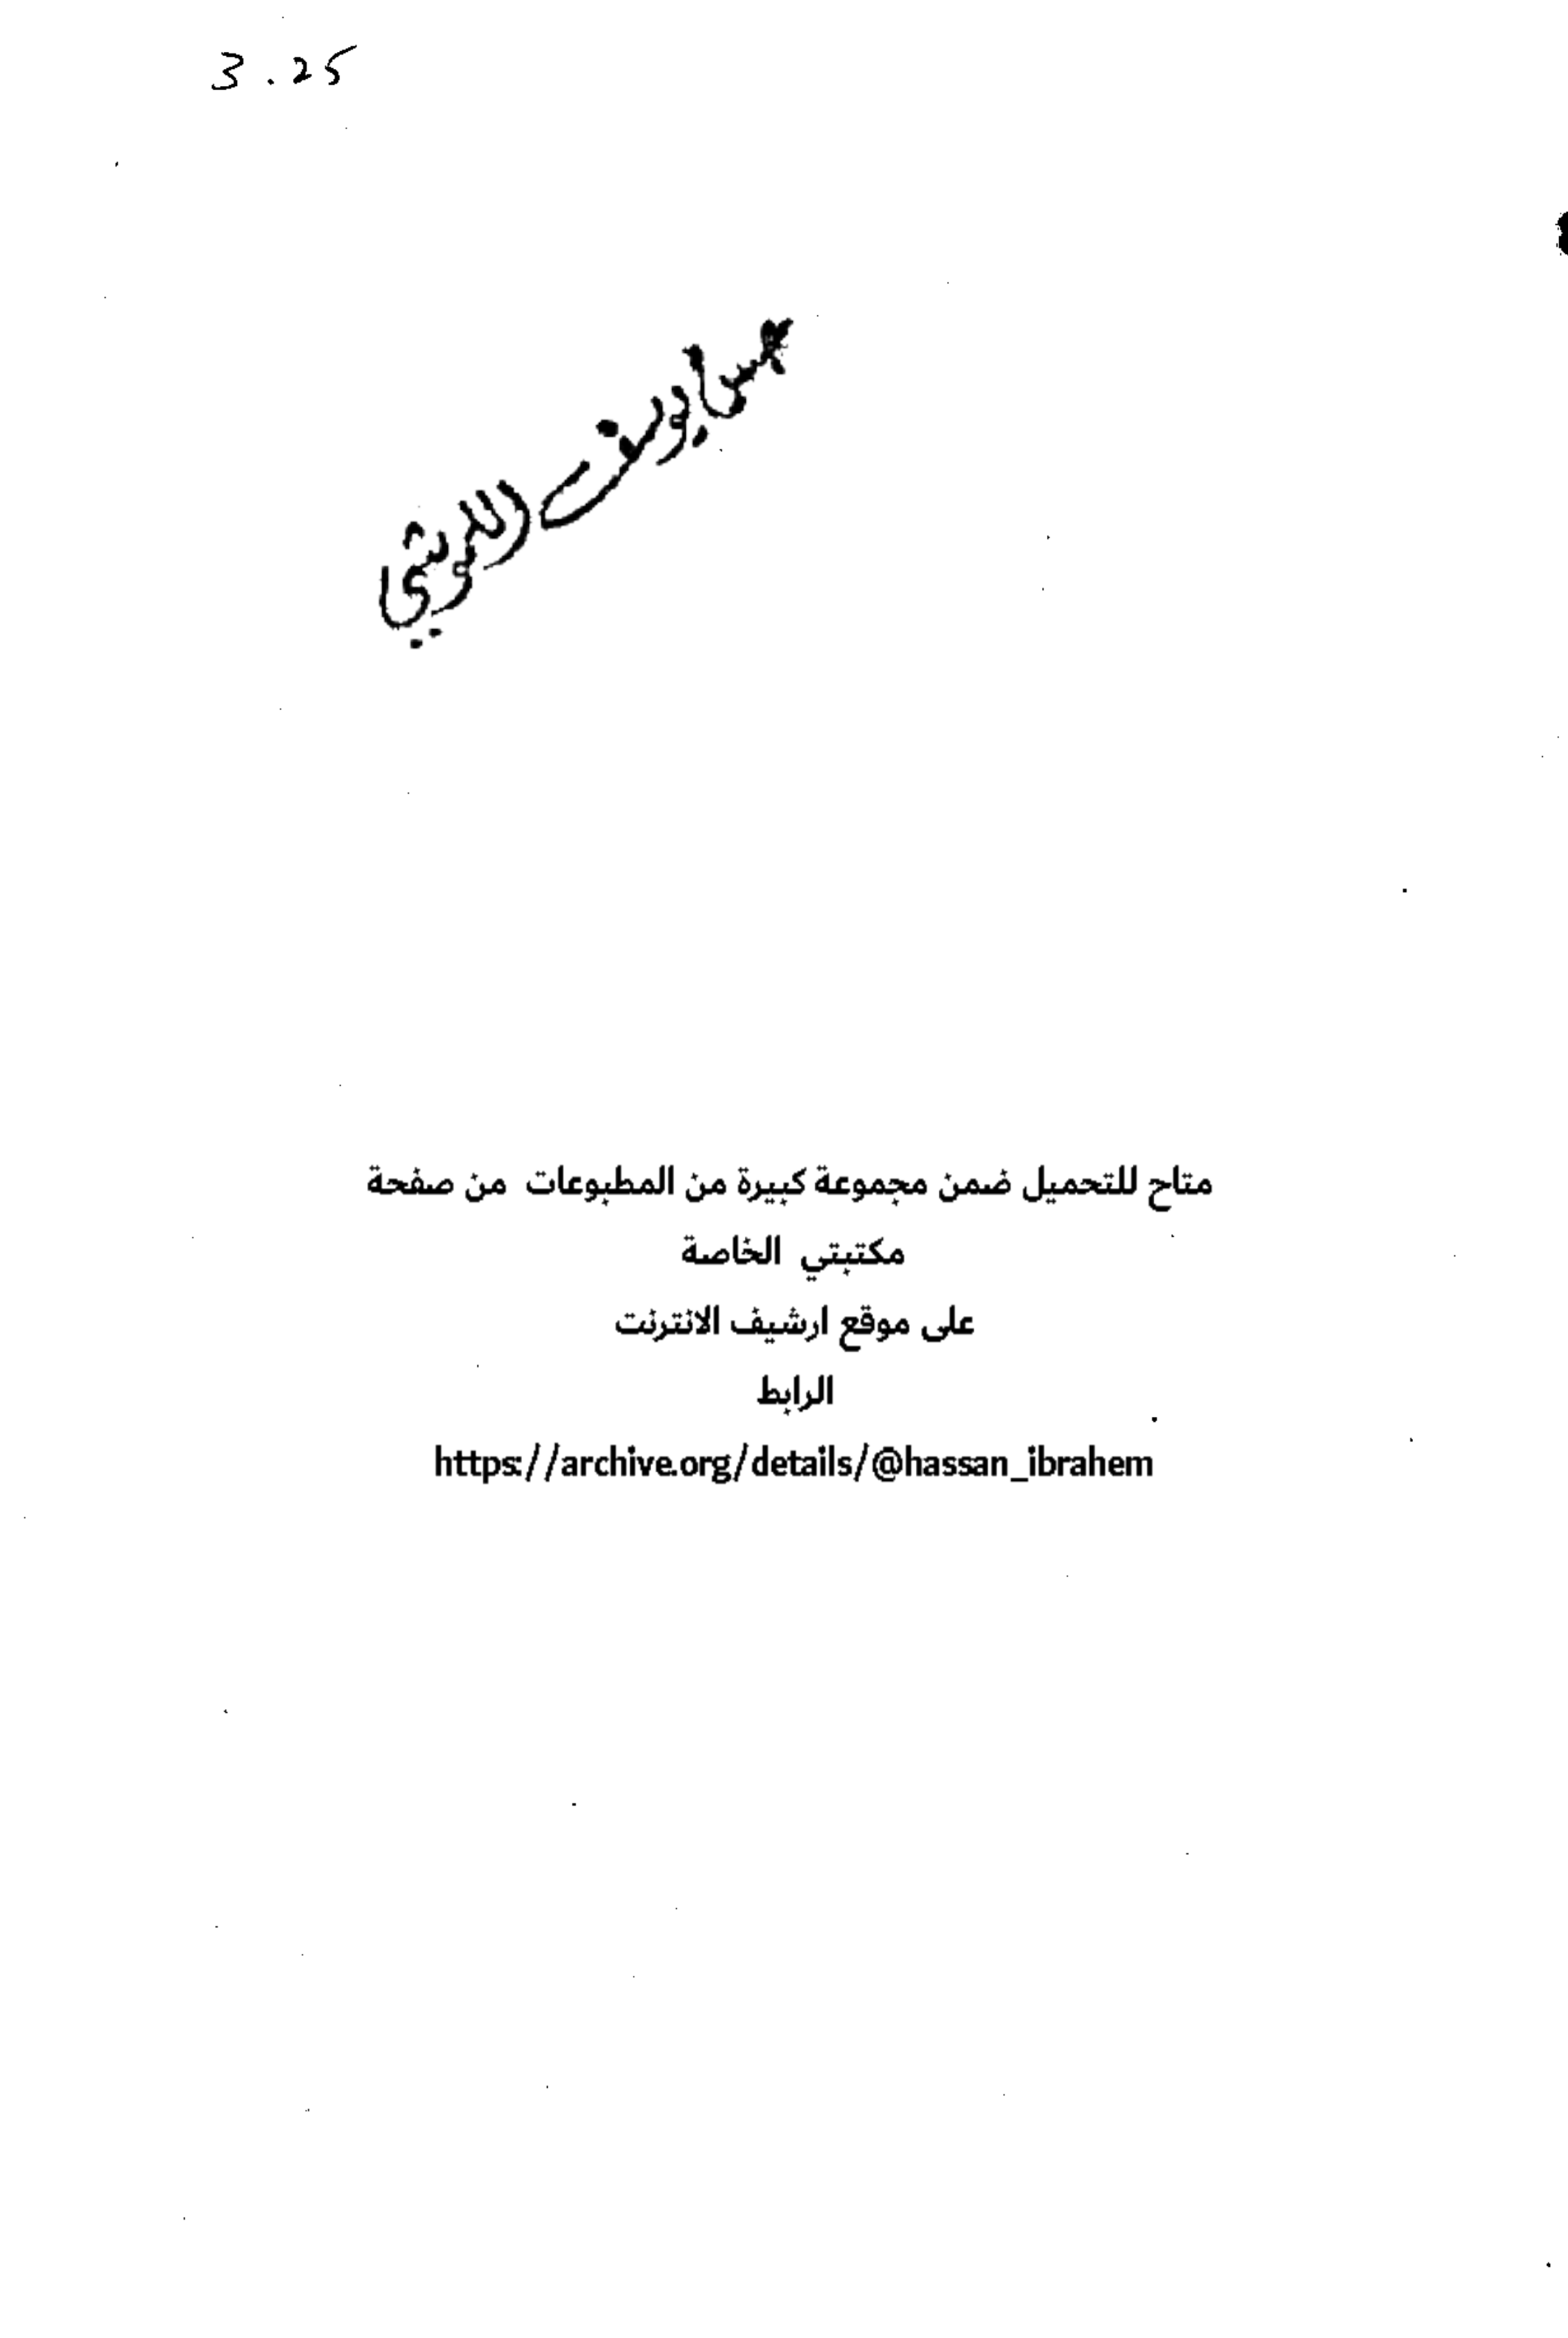 3.25
يوسف
متاح للتحميل ضمن مجموعة كبيرة من المطبوعات من صفحة
مكتبتي الخاصة
على موقع ارشيف الانترنت
الرابط
https://archive.org/details/@hassan_ibrahem